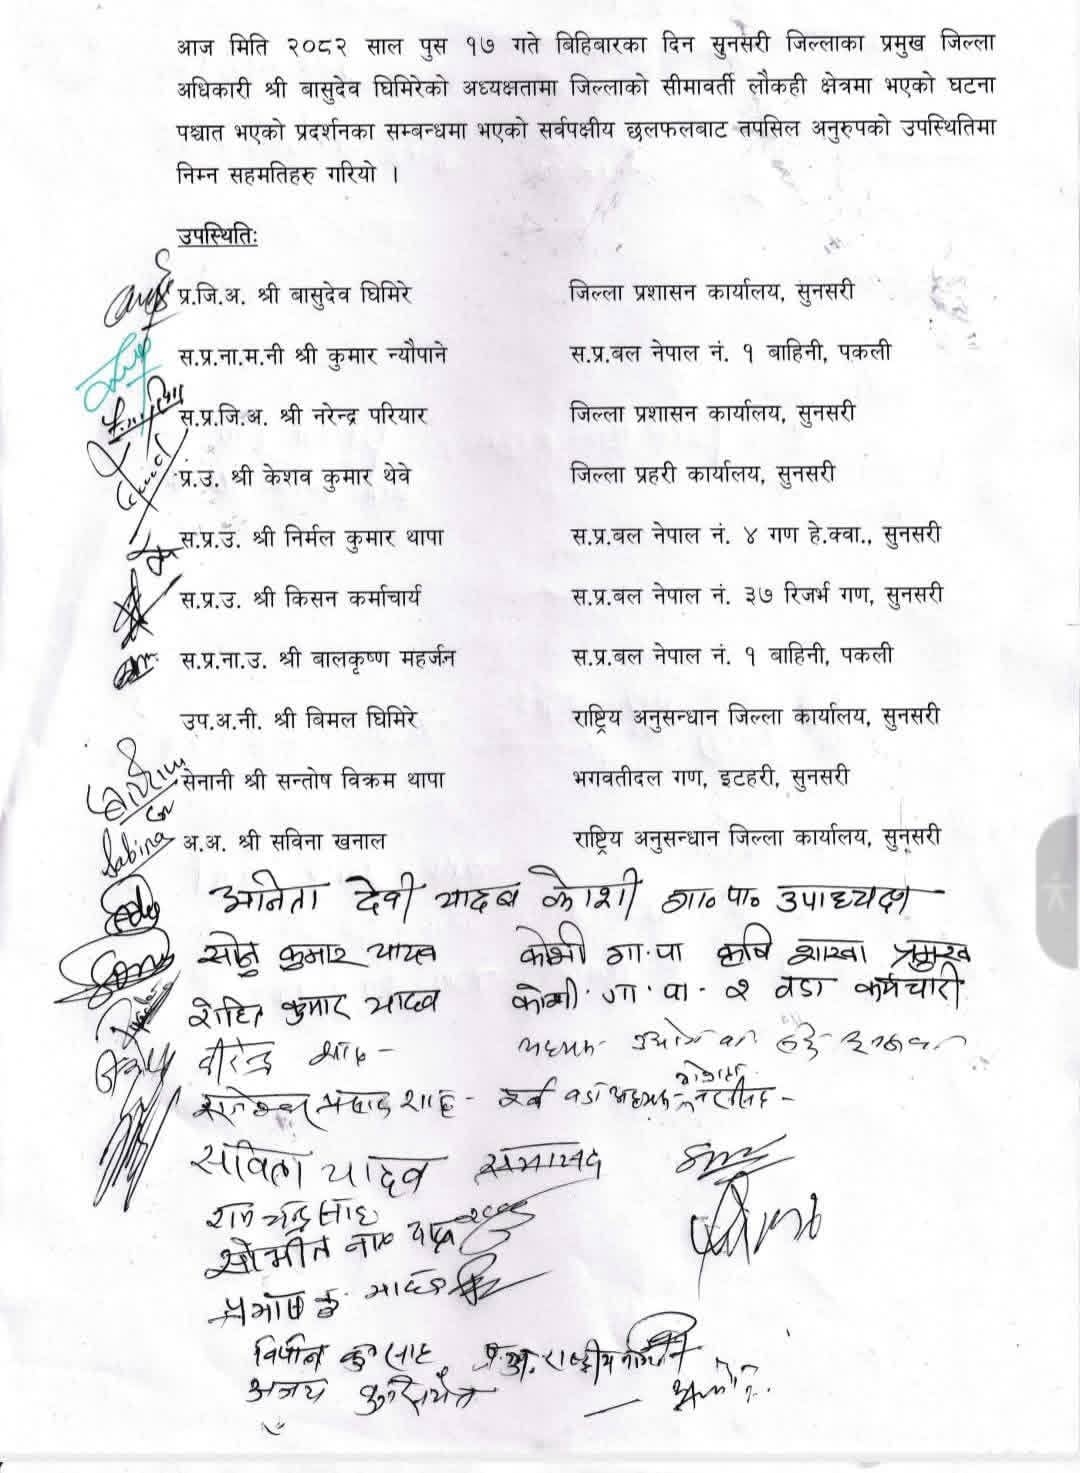 आज मिति २०८२ साल पुस १७ गते बिहिबारका दिन सुनसरी जिल्लाका प्रमुख जिल्ला
अधिकारी श्री बासुदेव घिमिरेको अध्यक्षतामा जिल्लाको सीमावर्ती लौकही क्षेत्रमा भएको घटना
पश्चात भएको प्रदर्शनका सम्बन्धमा भएको सर्वपक्षीय छलफलबाट तपसिल अनुरुपको उपस्थितिमा
निम्न सहमतिहरु गरियो ।
उपस्थितिः
प्र.जि.अ. श्री बासुदेव घिमिरे जिल्ला प्रशासन कार्यालय, सुनसरी
स.प्र.ना.म.नी श्री कुमार न्यौपाने स.प्र.बल नेपाल नं. १ बाहिनी, पकली
स.प्र.जि.अ. श्री नरेन्द्र परियार जिल्ला प्रशासन कार्यालय, सुनसरी
प्र.उ. श्री केशव कुमार थेवे जिल्ला प्रहरी कार्यालय, सुनसरी
स.प्र.उ. श्री निर्मल कुमार थापा स.प्र.बल नेपाल नं. ४ गण हे.क्वा., सुनसरी
स.प्र.उ. श्री किसन कर्माचार्य स.प्र.बल नेपाल नं. ३७ रिजर्भ गण, सुनसरी
स.प्र.ना.उ. श्री बालकृष्ण महर्जन स.प्र.बल नेपाल नं. १ बाहिनी, पकली
उप.अ.नी. श्री बिमल घिमिरे राष्ट्रिय अनुसन्धान जिल्ला कार्यालय, सुनसरी
सेनानी श्री सन्तोष विक्रम थापा भगवतीदल गण, इटहरी, सुनसरी
Sabina अ.अ. श्री सविना खनाल राष्ट्रिय अनुसन्धान जिल्ला कार्यालय, सुनसरी
अनिता देवी यादव कोशी गा॰ पा॰ उपाध्यक्ष
सोनु कुमार यादव कोशी गा.पा कृषि शाखा प्रमुख
रोहित कुमार यादव कोशी.गा.पा - २ वडा कर्मचारी
वीरेन्द्र साह -
प्रसाद शाह - पूर्व वडा अध्यक्ष
सविता यादव सभासद
राम चन्द्र साह
यादव
विपीन कु साह प्र.अ. राष्ट्रीय
अजय कु